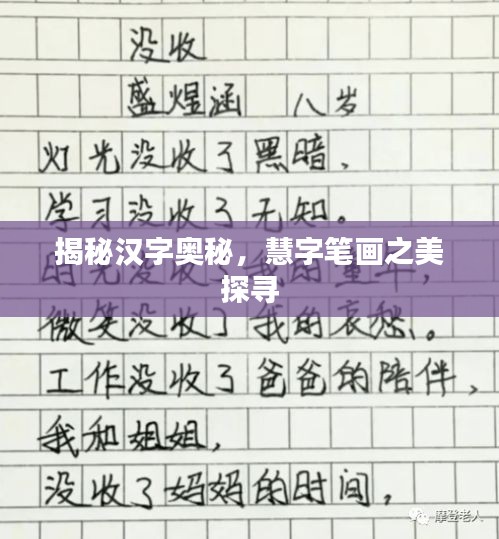 没收
盛煜涵 八岁
灯光没收了黑暗、
学习没收了无知。
揭秘汉字奥秘，慧字笔画之美
探寻
微笑没收了我的哀愁。
工作没收了爸爸的陪伴，
我和姐姐，
没收了妈妈的时间，
摩登老人